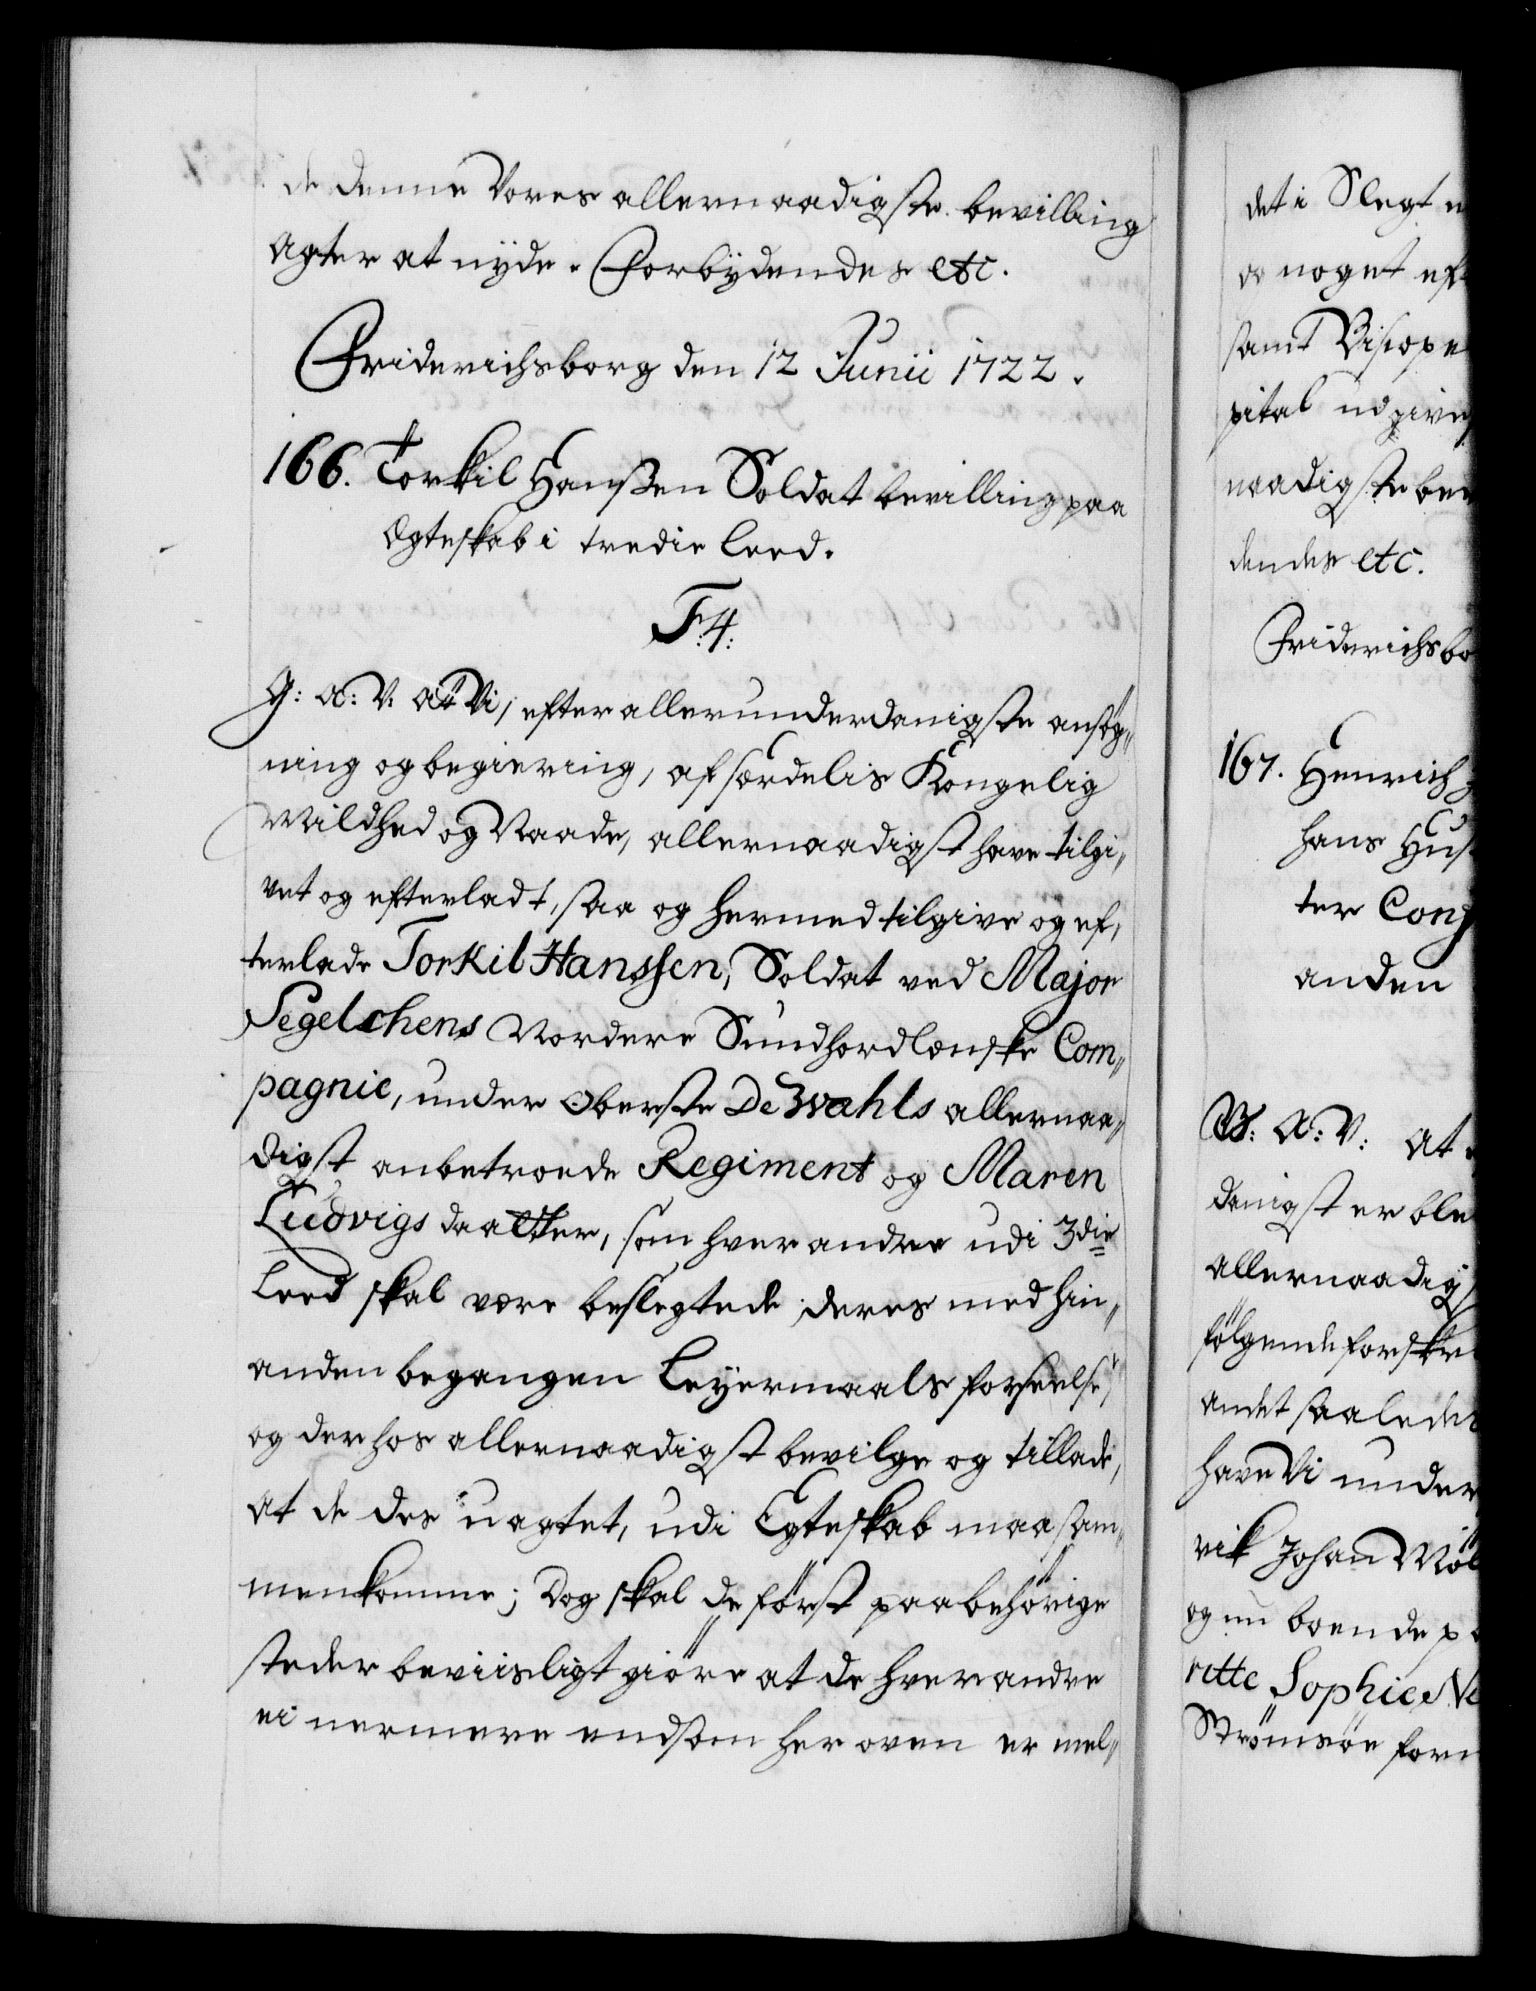 de denne Vores allernaadigste bevilling
agter at nyde. Forbydendes etc.
Friderichsborg den 12 Junii 1722.
166. Torkil Hanssen Soldat bevilling paa
Ægteskab i tredie Leed.
F:4:
G: A: V. at Vi, efter allerunderdanigste ansøg„
ning og begiering, af særdelis Kongelig
Mildhed og Naade, allernaadigst have tilgi„
vet og efterladt, saa og hermed tilgive og ef„
terlade Torkil Hanssen, Soldat ved Major
Segelchens Nordere Sundhordlenske Com„
pagnie, under Oberste De Wahls allernaa„
digst anbetroede Regiment og Maren
Ludvigs daatter, som hverandre udi 3die
Leed skal være beslegtede, deres med hin„
anden begangen Leyermaals forseelse,
og derhos allernaadigst bevilge og tillade,
at de des uagtet, udi Egteskab maa sam„
menkomme; Dog skal de først paa behørige
steder beviisligt giøre at de hverandre
ei nermere end som her oven er mel„
det i Slegt
og noget
samt Bisrope
pital udgive
naadigste
dendes etc.
Friderichsbo
167. Henrich
hans
ter
anden
B: A: V: at
danigst er ble
allernaadig
følgende forskre
andet saaledes
have Vi under
vik Johan
og nu boende
ritte Sophie
Strømsøe